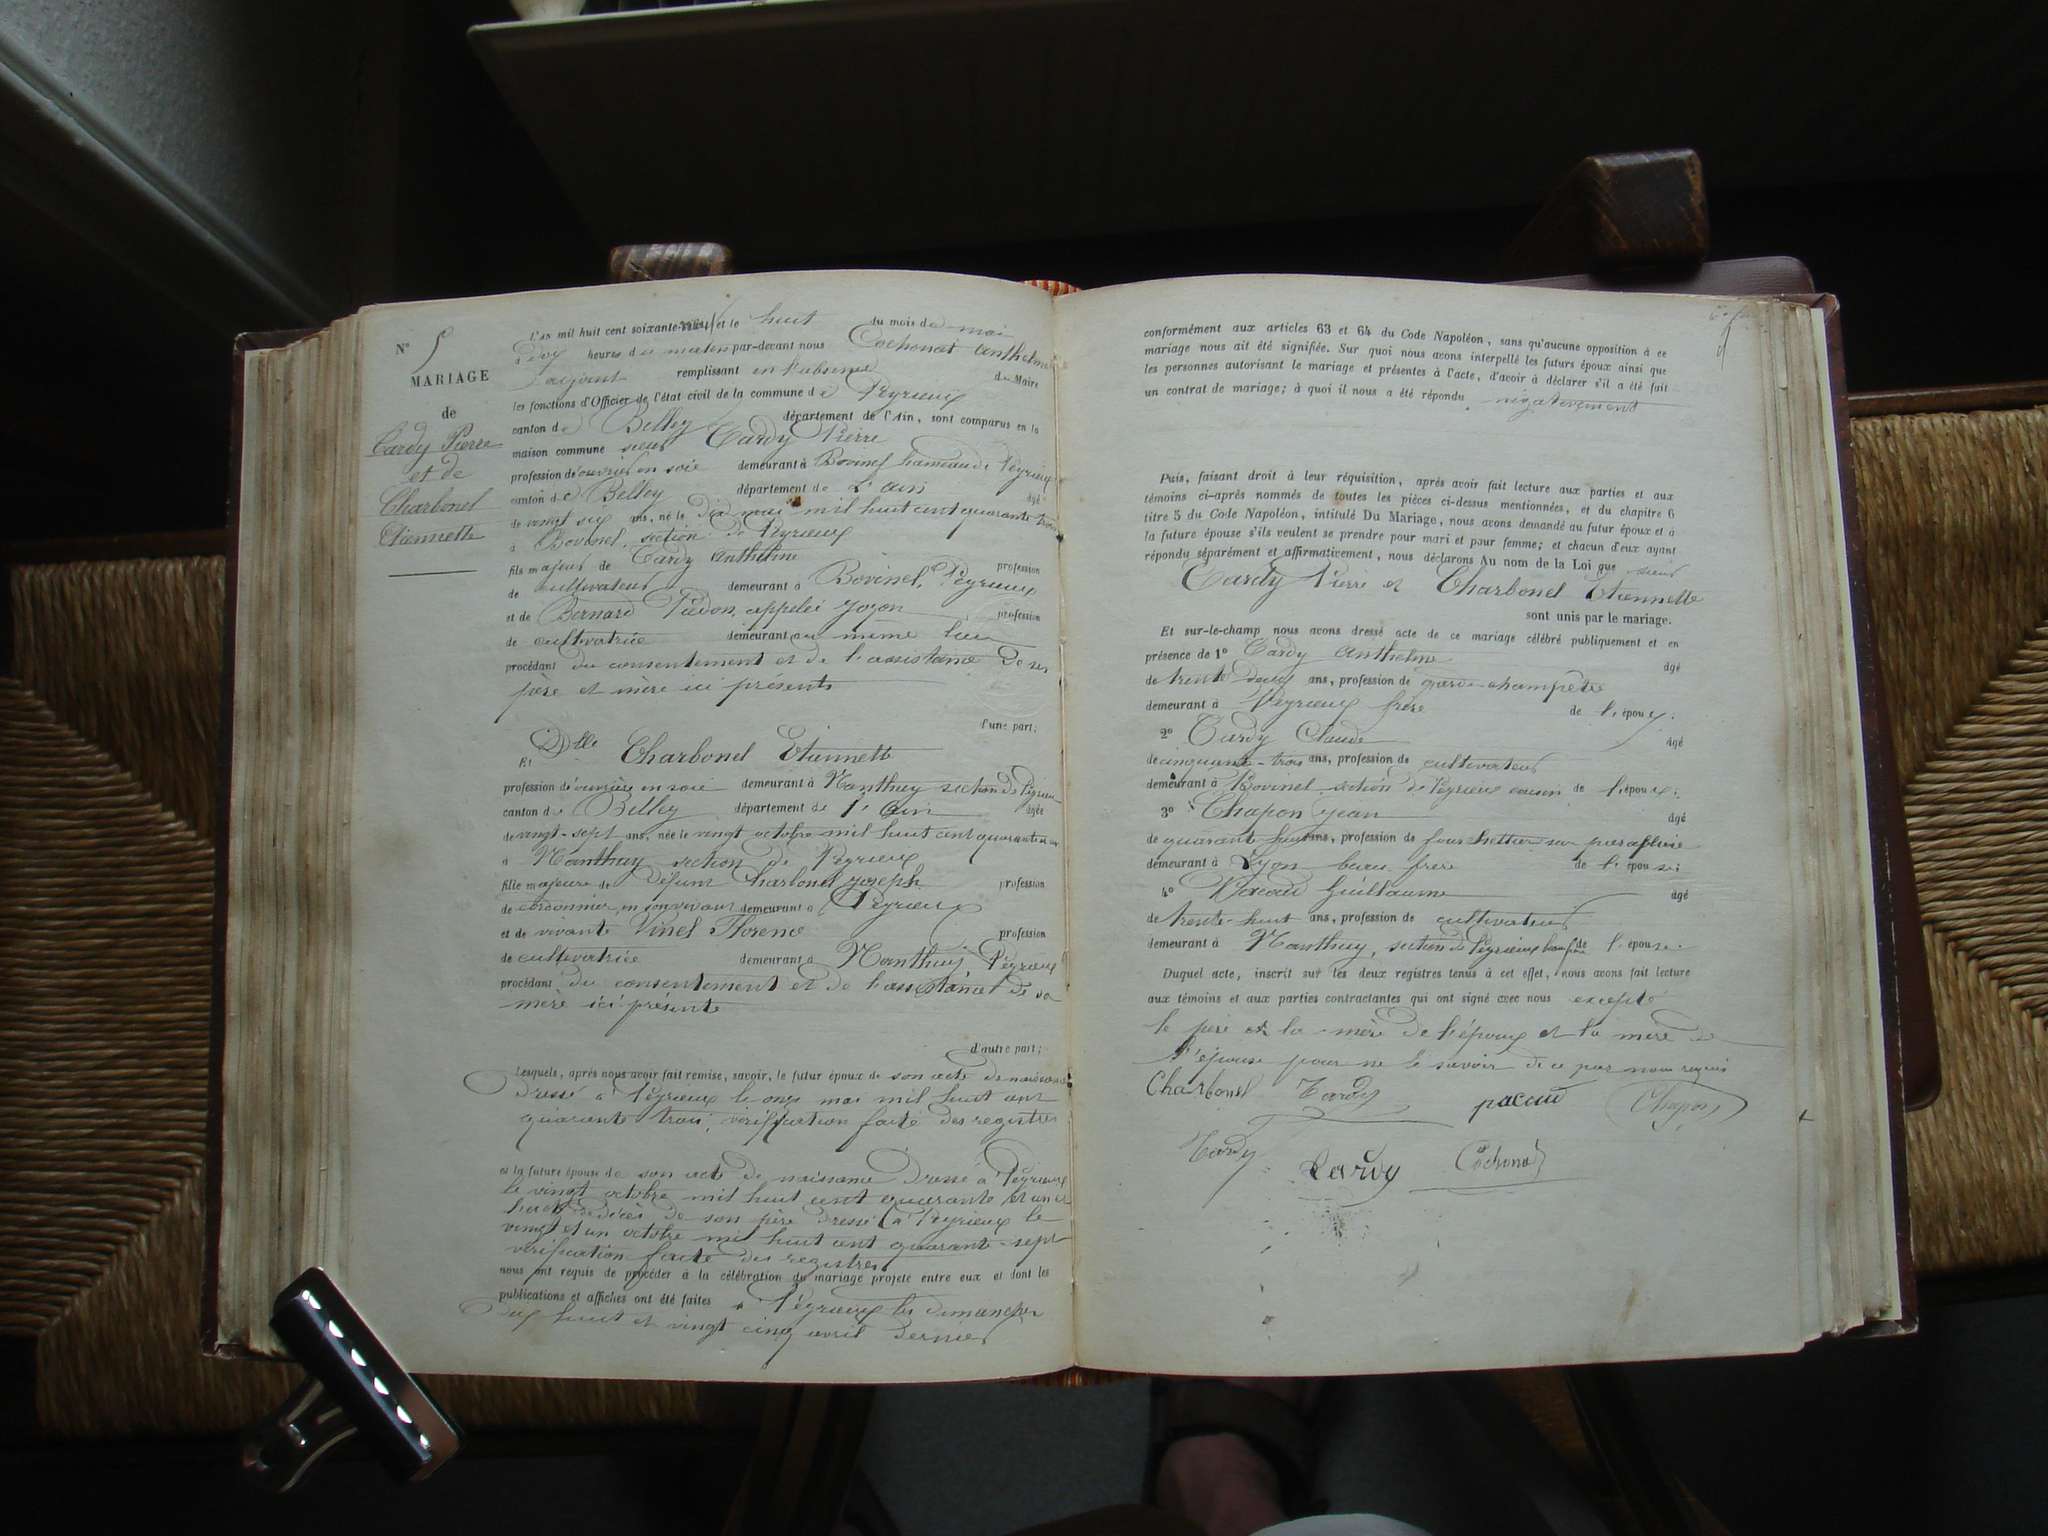 N° 5
MARIAGE
de
Tardy Pierre
et de
Charbonel
Etiennette
L'an mil huit cent soixante-neuf et le huit du mois de mai
à dix heures du matin par-devant nous Cochonat Anthelme
adjoint remplissant en l'absence du Maire
les fonctions d'Officier de l'état civil de la commune de Peyrieux
canton de Belley département de l'Ain, sont comparus en la
maison commune sieur Tardy Pierre
profession de ouvrier en soie demeurant à Bovinel hameau de Peyrieux
canton de Belley département de L'ain âgé
de vingt six ans, né le dix mai mil huit cent quarante trois
à Bovinel, section de Peyrieux
fils majeur de Tardy Anthelme profession
de cultivateur demeurant à Bovinel, Peyrieux
et de Bernard appelée profession
de cultivatrice demeurant au même lieu
procédant du consentement et de l'assistance de ses
père et mère ici présents
d'une part;
Et Dlle Charbonel Etiennette
profession d'ouvrière en soie demeurant à Nanthuy section de Peyrieux
canton de Belley département de l'Ain âgée
de vingt-sept ans, née le vingt octobre mil huit cent quarante et un
à Nanthuy section de Peyrieux
fille majeure de défunt Charbonel Joseph profession
de cordonnier en son vivant demeurant à Peyrieux
et de vivante Vinel profession
de cultivatrice demeurant à Nanthuy Peyrieux
procédant du consentement et de l'assistance de sa
mère ici présente
d'autre part;
Lesquels, après nous avoir fait remise, savoir, le futur époux de son acte de naissance
dressé à Peyrieux le onze mai mil huit cent
quarante trois, vérification faite des registres
et la future épouse de son acte de naissance dressé à Peyrieux
le vingt octobre mil huit cent quarante et un et
l'acte de décès de son père dressé à Peyrieux le
vingt et un octobre mil huit cent quarante-sept
vérification faite des registres.
nous ont requis de procéder à la célébration du mariage projeté entre eux et dont les
publications et affiches ont été faites à Peyrieux les dimanches
dix huit et vingt cinq avril dernier
conformément aux articles 63 et 64 du Code Napoléon, sans qu'aucune opposition à ce
mariage nous ait été signifiée. Sur quoi nous avons interpellé les futurs époux ainsi que
les personnes autorisant le mariage et présentes à l'acte, d'avoir à déclarer s'il a été fait
un contrat de mariage; à quoi il nous a été répondu négativement
Puis, faisant droit à leur réquisition, après avoir fait lecture aux parties et aux
témoins ci-après nommés de toutes les pièces ci-dessus mentionnées, et du chapitre 6
titre 5 du Code Napoléon, intitulé Du Mariage, nous avons demandé au futur époux et à
la future épouse s'ils veulent se prendre pour mari et pour femme; et chacun d'eux ayant
répondu séparément et affirmativement, nous déclarons Au nom de la Loi que sieur
Tardy Pierre et Charbonel Etiennette
sont unis par le mariage.
Et sur-le-champ nous avons dressé acte de ce mariage célébré publiquement et en
présence de 1° Tardy Anthelme âgé
de trente deux ans, profession de garde-champêtre
demeurant à Peyrieux frère de l'époux;
2° Tardy Claude âgé
de cinquante-trois ans, profession de cultivateur
demeurant à Bovinel section de Peyrieux cousin de l'époux;
3° Chapon Jean âgé
de quarante huit ans, profession de fourchettier sur parapluie
demeurant à Lyon beau frère de l'épouse;
4° Guillaume âgé
de trente-huit ans, profession de cultivateur
demeurant à Nanthuy, section de Peyrieux beau frère de l'épouse.
Duquel acte, inscrit sur les deux registres tenus à cet effet, nous avons fait lecture
aux témoins et aux parties contractantes qui ont signé avec nous excepté
le père et la mère de l'époux et la mère de
l'épouse pour ne le savoir de ce par nous requis
Charbonel Tardy pacoud Chapon
Tardy Tardy Cochonat